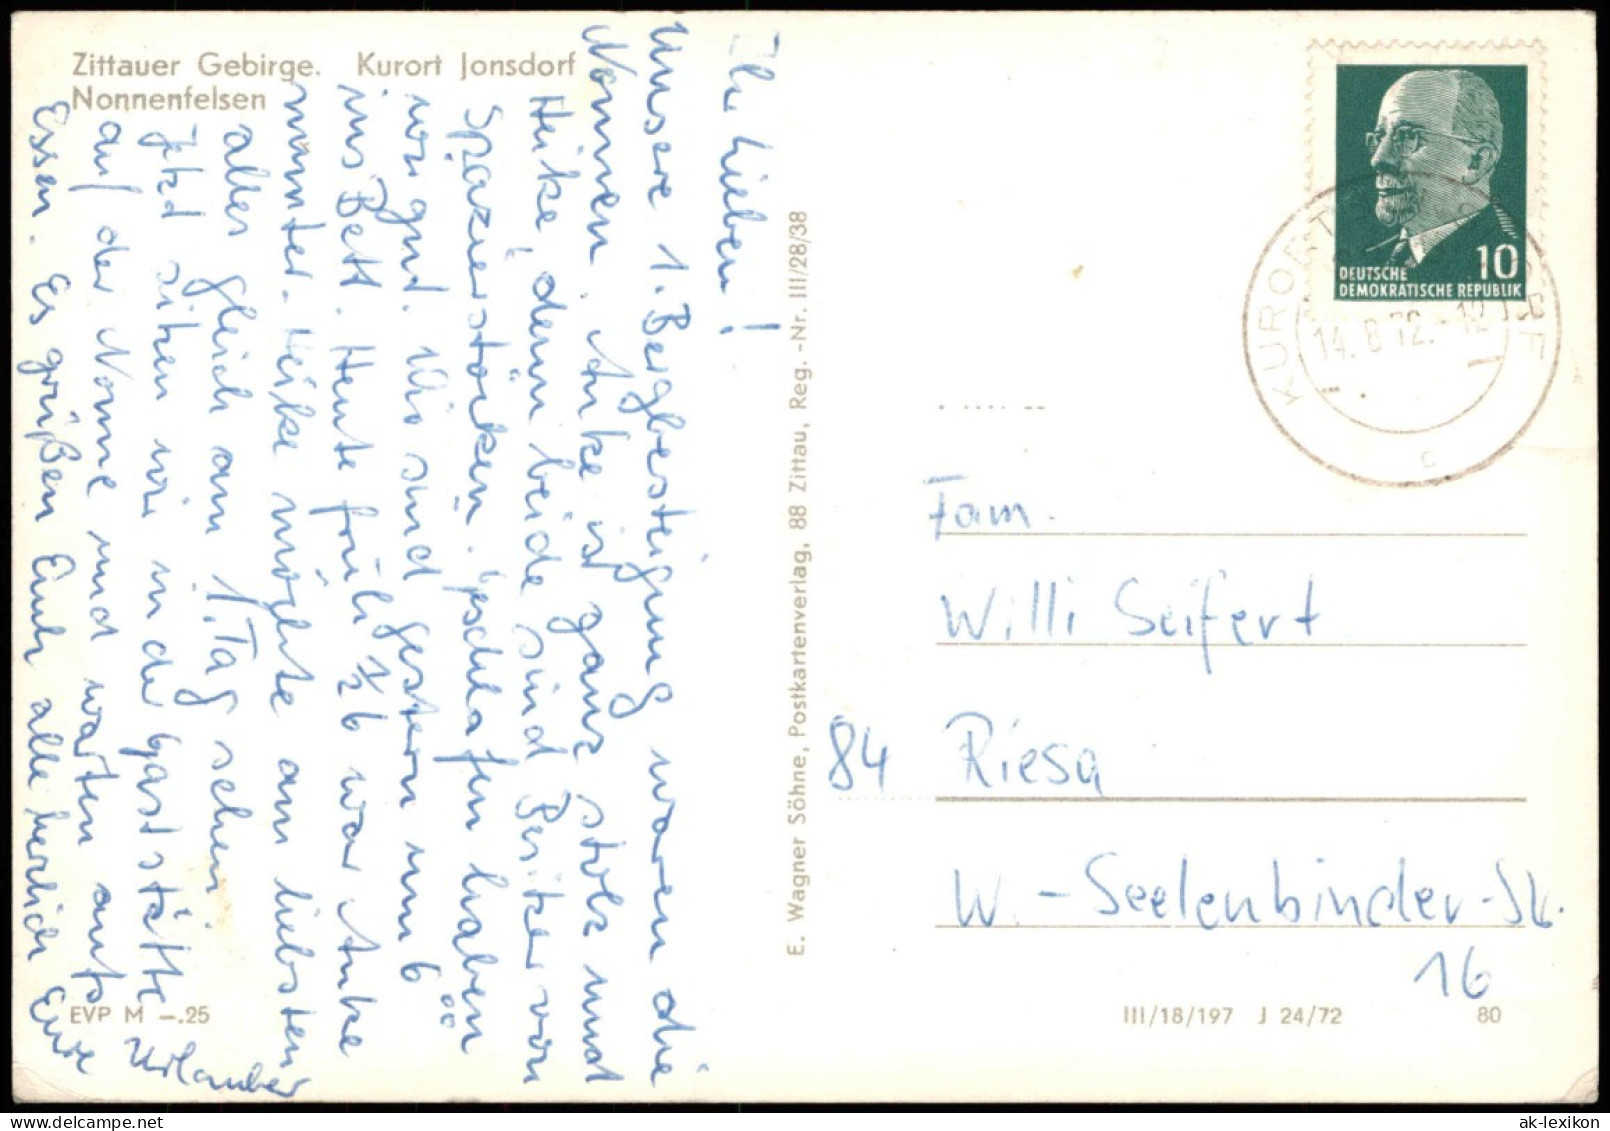 Zittauer Gebirge. Kurort Jonsdorf
Nonnenfelsen
Ihr Lieben!
Unsere 1. Bergbesteigung waren die
Nonnen. Anke ist ganz stolz und
Heike, denn beide sind Besitzer von
Spazierstöcken. Geschlafen haben
wir gut. Wir sind gestern um 6
ins Bett. Heute früh ½ 6 war Anke
munter. Heike möchte am liebsten
alles gleich am 1. Tag sehen.
Jetzt sitzen wir in der Gaststätte
auf der Nonne und warten aufs
Essen. Es grüßen Euch alle herzlich Eure
Urlauber
EVP M -.25
E. Wagner Söhne, Postkartenverlag, 88 Zittau, Reg.-Nr. III/28/38
10
DEUTSCHE
DEMOKRATISCHE REPUBLIK
KURORT JONSDORF
14. 8. 72.-12
c
Fam.
Willi Seifert
84 Riesa
W.-Seelenbinder-Str.
16
III/18/197 J 24/72 80
ak-lexikon